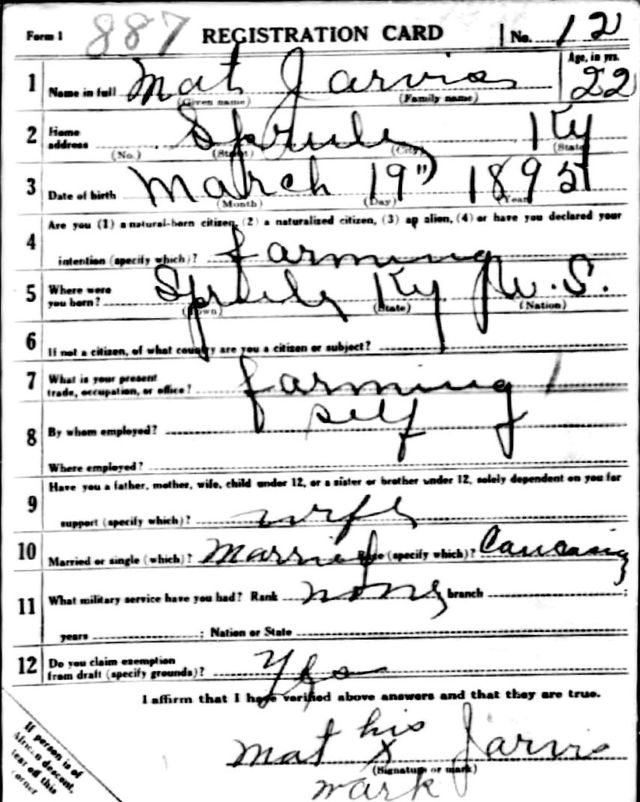 Form 1 887 REGISTRATION CARD No. 12
1 Name in full Mat Jarvis Age, in yrs. 22
(Given name) (Family name)
2 Home address Sprule Ky
(No.) (Street) (City) (State)
3 Date of birth March 19" 1895
(Month) (Day) (Year)
4 Are you (1) a natural-born citizen, (2) a naturalized citizen, (3) an alien, (4) or have you declared your
intention (specify which)? farming
5 Where were you born? Sprule Ky U.S.
(Town) (State) (Nation)
6 If not a citizen, of what country are you a citizen or subject?
7 What is your present trade, occupation, or office? farming
8 By whom employed? self
Where employed?
9 Have you a father, mother, wife, child under 12, or a sister or brother under 12, solely dependent on you for
support (specify which)? wife
10 Married or single (which)? Married Race (specify which)?
11 What military service have you had? Rank none branch ;
years ; Nation or State
12 Do you claim exemption from draft (specify grounds)? Yes
I affirm that I have verified above answers and that they are true.
his
Mat X Jarvis
(Signature or mark)
mark
If person is of
African descent,
tear off this
corner